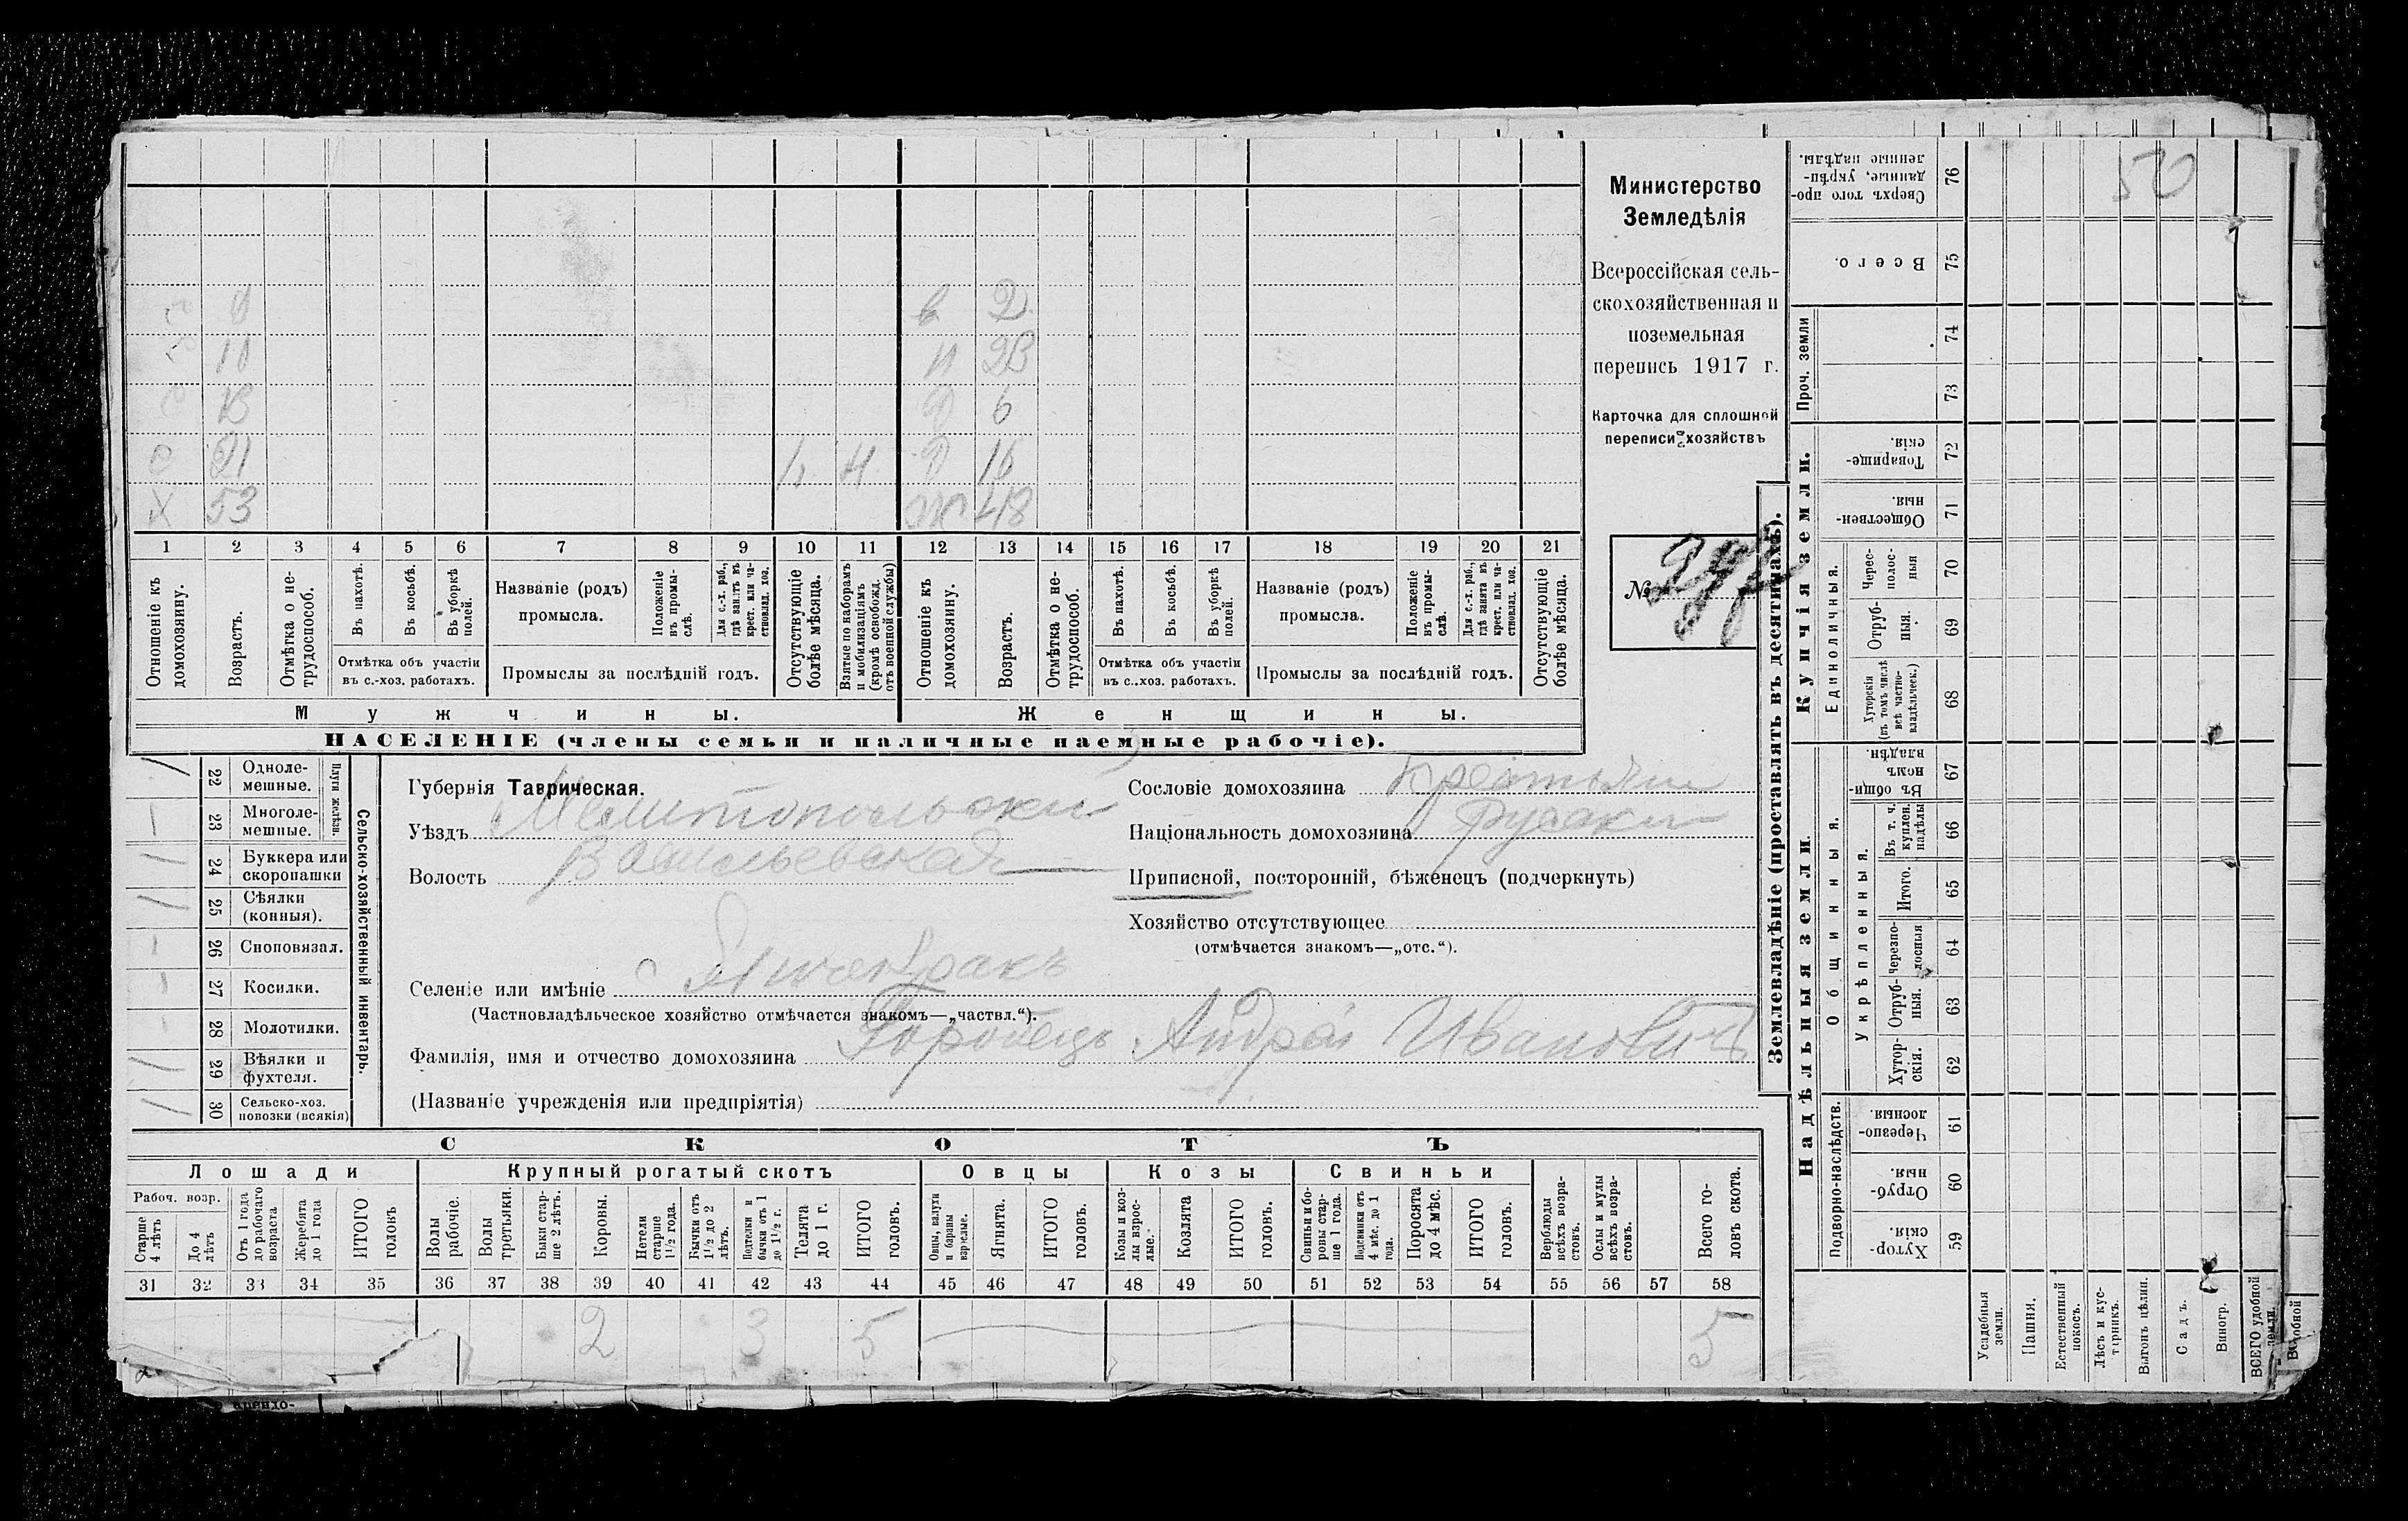 Министерство
Земледѣлія
Всероссійская сель-
скохозяйственная и
поземельная
перепись 1917 г.
Карточка для сплошной
переписи хозяйствъ
№
в 2
11 и 23
с 13 д 6
с 21 д 16
х 53 ж 48
1 2 3 4 5 6 7 8 9 10 11 12 13 14 15 16 17 18 19 20 21
Отношеніе къ домохозяину.
Возрастъ.
Отмѣтка о не-трудоспособ.
Въ пахотѣ.
Въ косьбѣ.
Въ уборкѣ полей.
Отмѣтка объ участіи
въ с.-хоз. работахъ.
Названіе (родъ)
промысла.
Положеніе въ промы-слѣ.
Для с.-х. раб., гдѣ занятъ въ крест. или ча-стновлад. хоз.
Промыслы за послѣдній годъ.
Отсутствующіе болѣе мѣсяца.
Взятые по наборамъ и мобилизаціямъ (кромѣ освобожд. отъ военной службы)
Отношеніе къ домохозяину.
Возрастъ.
Отмѣтка о не-трудоспособ.
Въ пахотѣ.
Въ косьбѣ.
Въ уборкѣ полей.
Отмѣтка объ участіи
въ с.-хоз. работахъ.
Названіе (родъ)
промысла.
Положеніе въ промы-слѣ.
Для с.-х. раб., гдѣ занята въ крест. или ча-стновлад. хоз.
Промыслы за послѣдній годъ.
Отсутствующіе болѣе мѣсяца.
Мужчины. Женщины.
НАСЕЛЕНІЕ (члены семьи и наличные наемные рабочіе).
22 Одноле-мешные.
23 Многоле-мешные.
Плуги желѣзн.
24 Буккера или скоропашки
25 Сѣялки (конныя).
26 Сноповязал.
27 Косилки.
28 Молотилки.
29 Вѣялки и фухтеля.
30 Сельско-хоз. повозки (всякія)
Сельско-хозяйственный инвентарь.
Губернія Таврическая.
Уѣздъ Мелитопольски
Волость Васильевская
Селеніе или имѣніе с Янчекракъ
(Частновладѣльческое хозяйство отмѣчается знакомъ—„частвл.“).
Фамилія, имя и отчество домохозяина Горобецъ Андрей Ивановичъ
(Названіе учрежденія или предпріятія)
Сословіе домохозяина Крестьян
Національность домохозяина Руски
Приписной, посторонній, бѣженецъ (подчеркнуть)
Хозяйство отсутствующее
(отмѣчается знакомъ—„отс.“).
СКОТЪ
Лошади Крупный рогатый скотъ Овцы Козы Свиньи
Рабоч. возр.
Старше 4 лѣтъ
До 4 лѣтъ
Отъ 1 года до рабочаго возраста
Жеребята до 1 года
ИТОГО головъ
Волы рабочіе.
Волы третьяки.
Быки стар-ше 2 лѣтъ.
Коровы.
Нетели старше 1½ года.
Бычки отъ 1½ до 2 лѣтъ.
Подтелки и бычки отъ 1 до 1½ г.
Телята до 1 г.
ИТОГО головъ.
Овцы, валухи и бараны взрослые.
Ягнята.
ИТОГО головъ.
Козы и коз-лы взрос-лые.
Козлята
ИТОГО головъ.
Свиньи и бо-ровы стар-ше 1 года.
Подсвинки отъ 4 мѣс. до 1 года.
Поросята до 4 мѣс.
ИТОГО головъ.
Верблюды всѣхъ возра-стовъ.
Ослы и мулы всѣхъ возра-стовъ.
Всего го-ловъ скота.
31 32 33 34 35 36 37 38 39 40 41 42 43 44 45 46 47 48 49 50 51 52 53 54 55 56 57 58
2 3 5 5
Землевладѣніе (проставлять въ десятинахъ).
Купчія земли.
Надѣльныя земли.
Сверхъ того про-данные, укрѣп-ленные надѣлы. 76
50
Всего. 75
Проч. земли 74 73
Товарище-скія. 72
Обществен-ныя. 71
Единоличныя.
Черес-полос-ныя 70
Отруб-ныя. 69
Хуторскія (въ томъ числѣ всѣ частно-владѣльческ.) 68
Въ общи-номъ владѣн. 67
Общинныя.
Укрѣпленныя.
Въ т. ч. куплен. надѣлы 66
Итого. 65
черезпо-лосныя 64
Отруб-ныя. 63
Хутор-скія. 62
Подворно-наслѣдств.
Черезпо-лосныя. 61
Отруб-ныя. 60
Хутор-скія. 59
Усадебныя земли.
Пашня.
Естественный покосъ.
Лѣсъ и кус-тарникъ.
Выгонъ цѣлин.
Садъ.
Виногр.
ВСЕГО удобной земли.